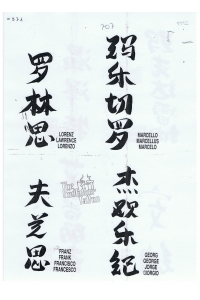 罗林思
LORENZ
LAWRENCE
LORENZO
玛乐切罗
MARCELLO
MARCELLUS
MARCELO
夫兰思
FRANZ
FRANK
FRANCISCO
FRANCESCO
杰欢乐纪
GEORG
GEORGE
JORGE
GIORGIO
The
Tattoo